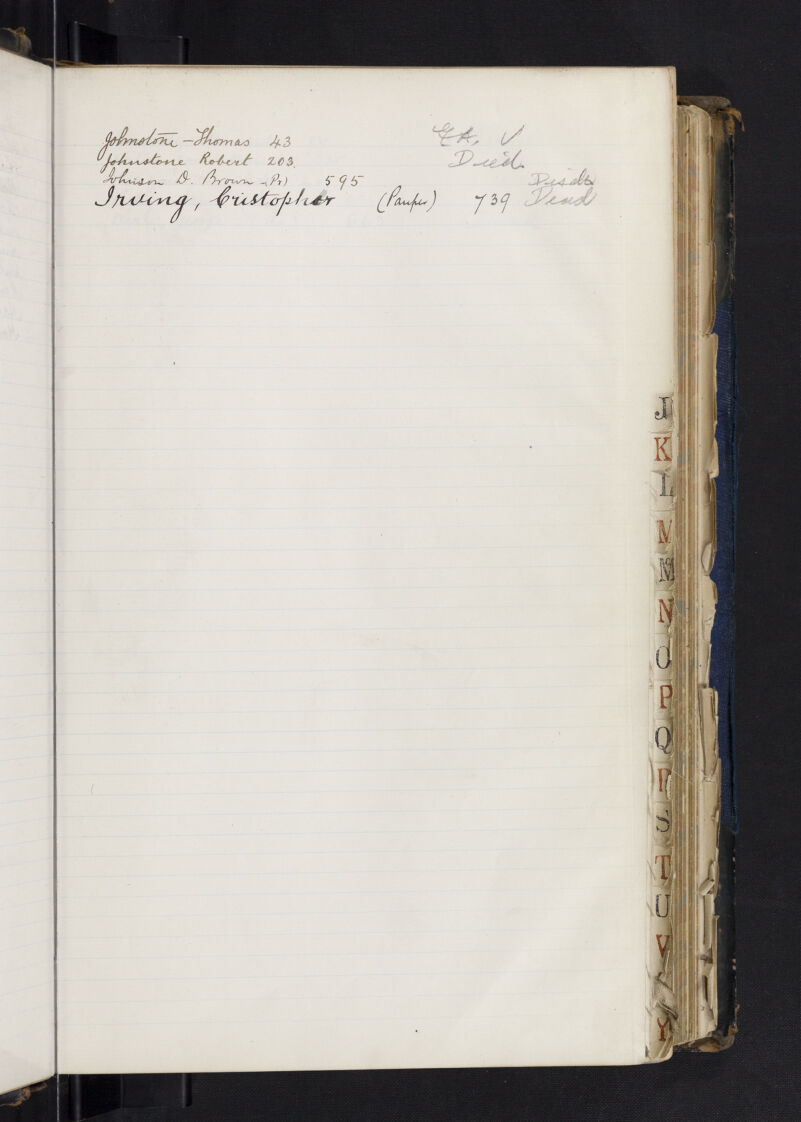 Johnstone - Thomas 43 V
Johnstone Robert 203. Died
Johnson D. Brown (Pr) 595
Irving, Cristopher (Pauper) 739 Dead
J
K
L
M
M
N
O
P
Q
S
T
U
V
Y